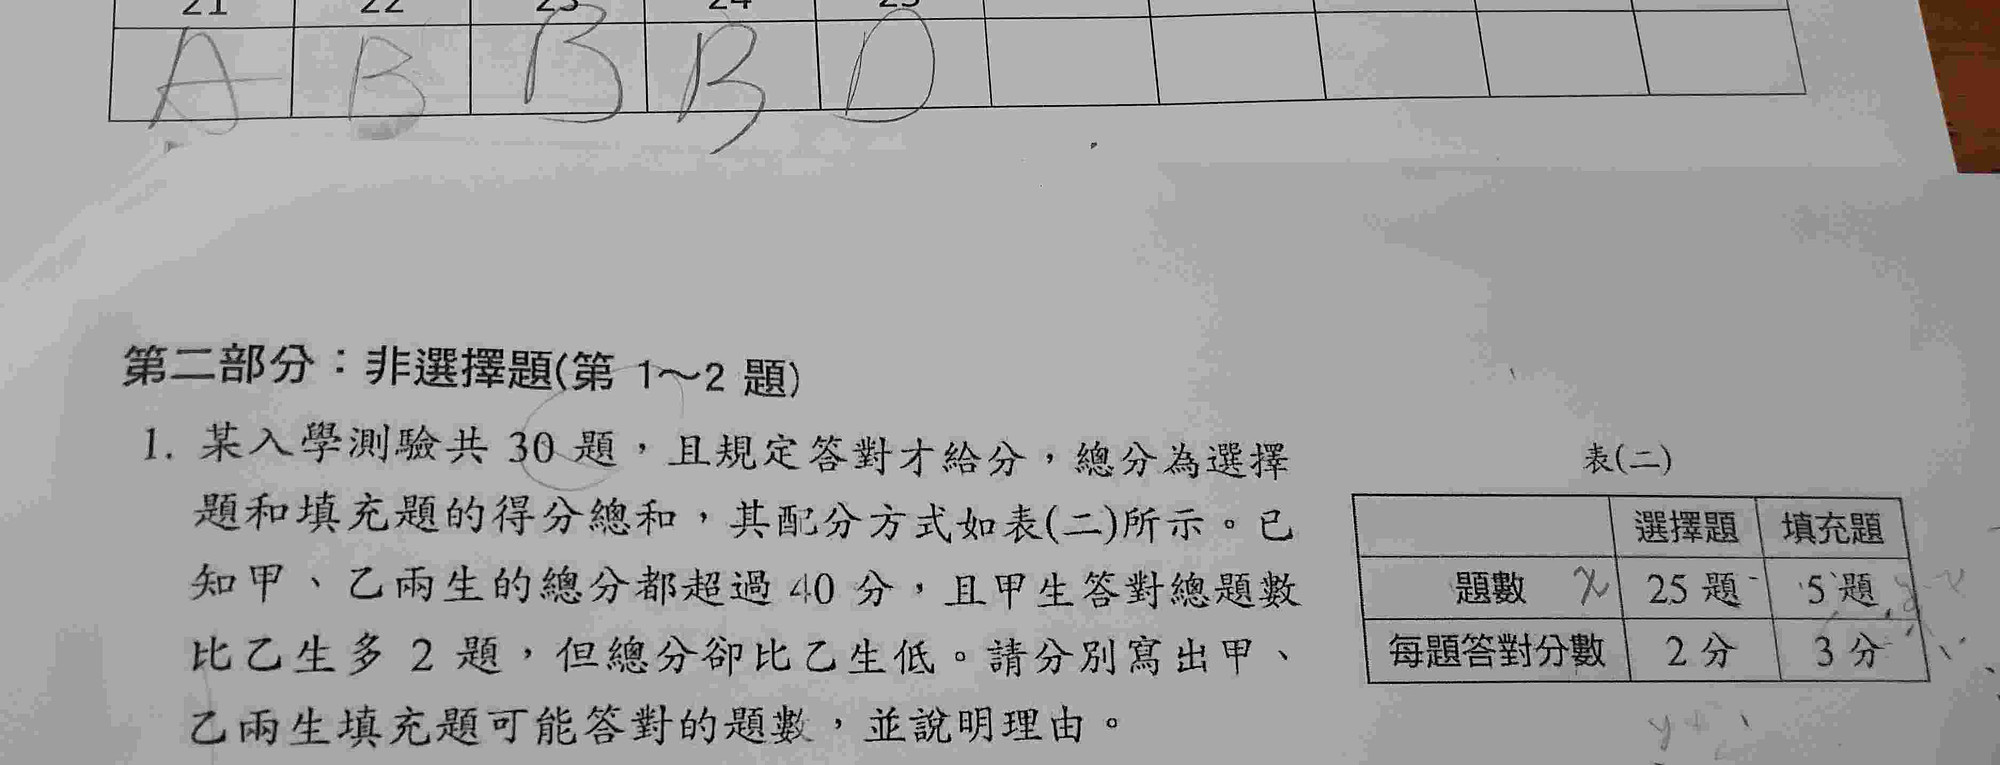 21 22 23 24 25
A B B B D
第二部分：非選擇題(第 1～2 題)
1. 某入學測驗共 30 題，且規定答對才給分，總分為選擇
題和填充題的得分總和，其配分方式如表(二)所示。已
知甲、乙兩生的總分都超過 40 分，且甲生答對總題數
比乙生多 2 題，但總分卻比乙生低。請分別寫出甲、
乙兩生填充題可能答對的題數，並說明理由。
表(二)
選擇題 填充題
題數 x 25 題 5 題
每題答對分數 2 分 3 分